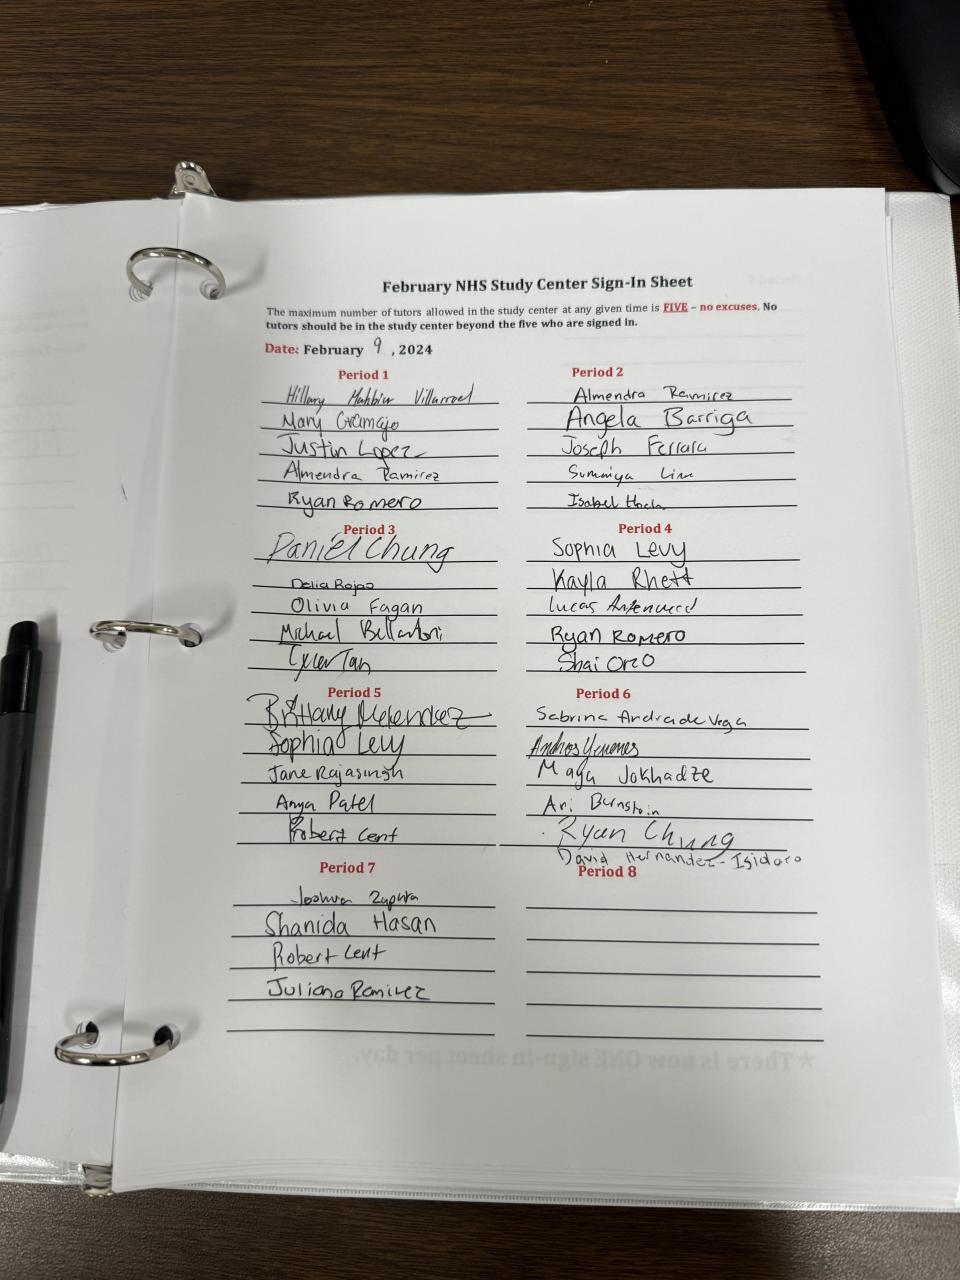 February NHS Study Center Sign-In Sheet
The maximum number of tutors allowed in the study center at any given time is FIVE – no excuses. No
tutors should be in the study center beyond the five who are signed in.
Date: February 9, 2024
Period 1
Hillary Mahbier Villarroel
Mary Gramajo
Justin Lopez
Almendra Ramirez
Ryan Romero
Period 2
Almendra Ramirez
Angela Barriga
Joseph Ferrara
Summiya Lim
Isabel
Period 3
Daniel Chung
Delia Rojas
Olivia Fagan
Michael Bellantoni
Tyler Tan
Period 4
Sophia Levy
Kayla Rhett
Lucas
Ryan Romero
Shai Oro
Period 5
Brittany Melendez
Sophia Levy
Jane Rajasingh
Anya Patel
Robert Cent
Period 6
Sabrina Andrade Vega
Andros Jimenes
Maya Jokhadze
Ari Burnstein
Ryan Chung
David Hernandez-Isidoro
Period 7
Joshua Zupura
Shanida Hasan
Robert Cent
Juliana Ramirez
Period 8
★There is now ONE sign-in sheet per day.